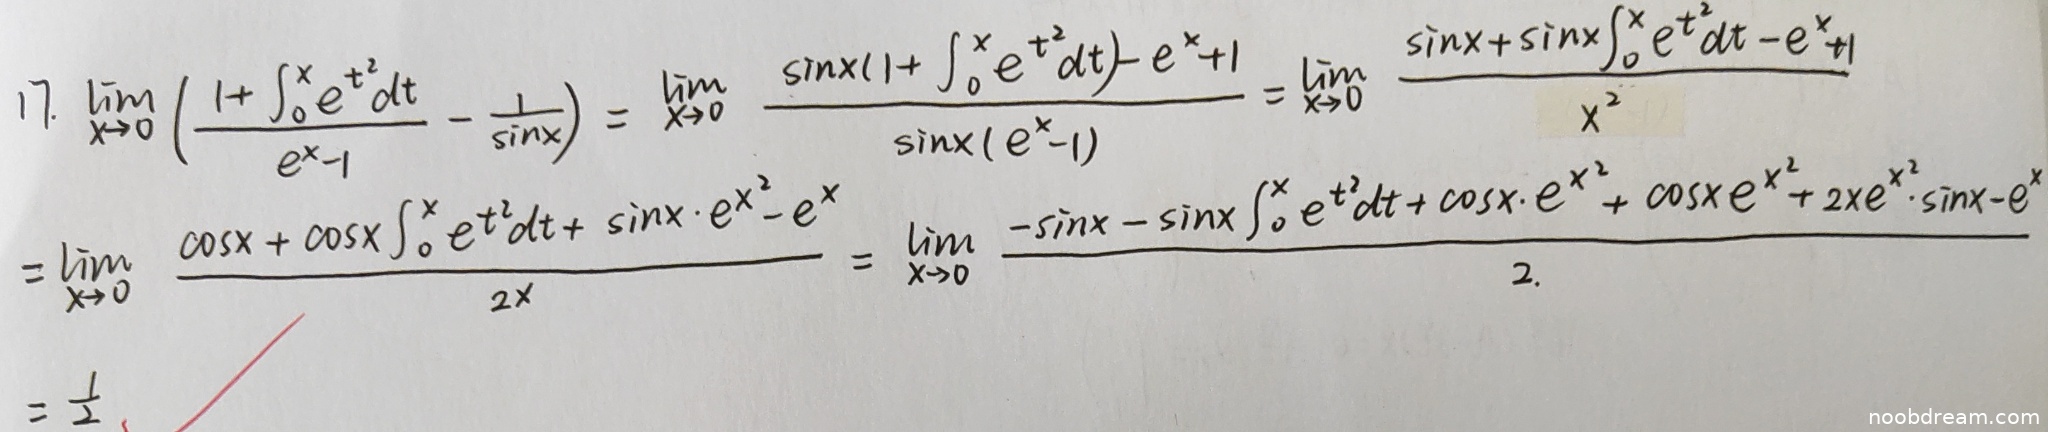 17. lim x→0 ( (1+∫₀ˣ e^{t²}dt)/(eˣ-1) - 1/sinx ) = lim x→0 (sinx(1+∫₀ˣ e^{t²}dt)-eˣ+1)/(sinx(eˣ-1)) = lim x→0 (sinx+sinx∫₀ˣ e^{t²}dt-eˣ+1)/x²
= lim x→0 (cosx+cosx∫₀ˣ e^{t²}dt+sinx·e^{x²}-eˣ)/2x = lim x→0 (-sinx-sinx∫₀ˣ e^{t²}dt+cosx·e^{x²}+cosxe^{x²}+2xe^{x²}·sinx-eˣ)/2.
= 1/2
noobdream.com